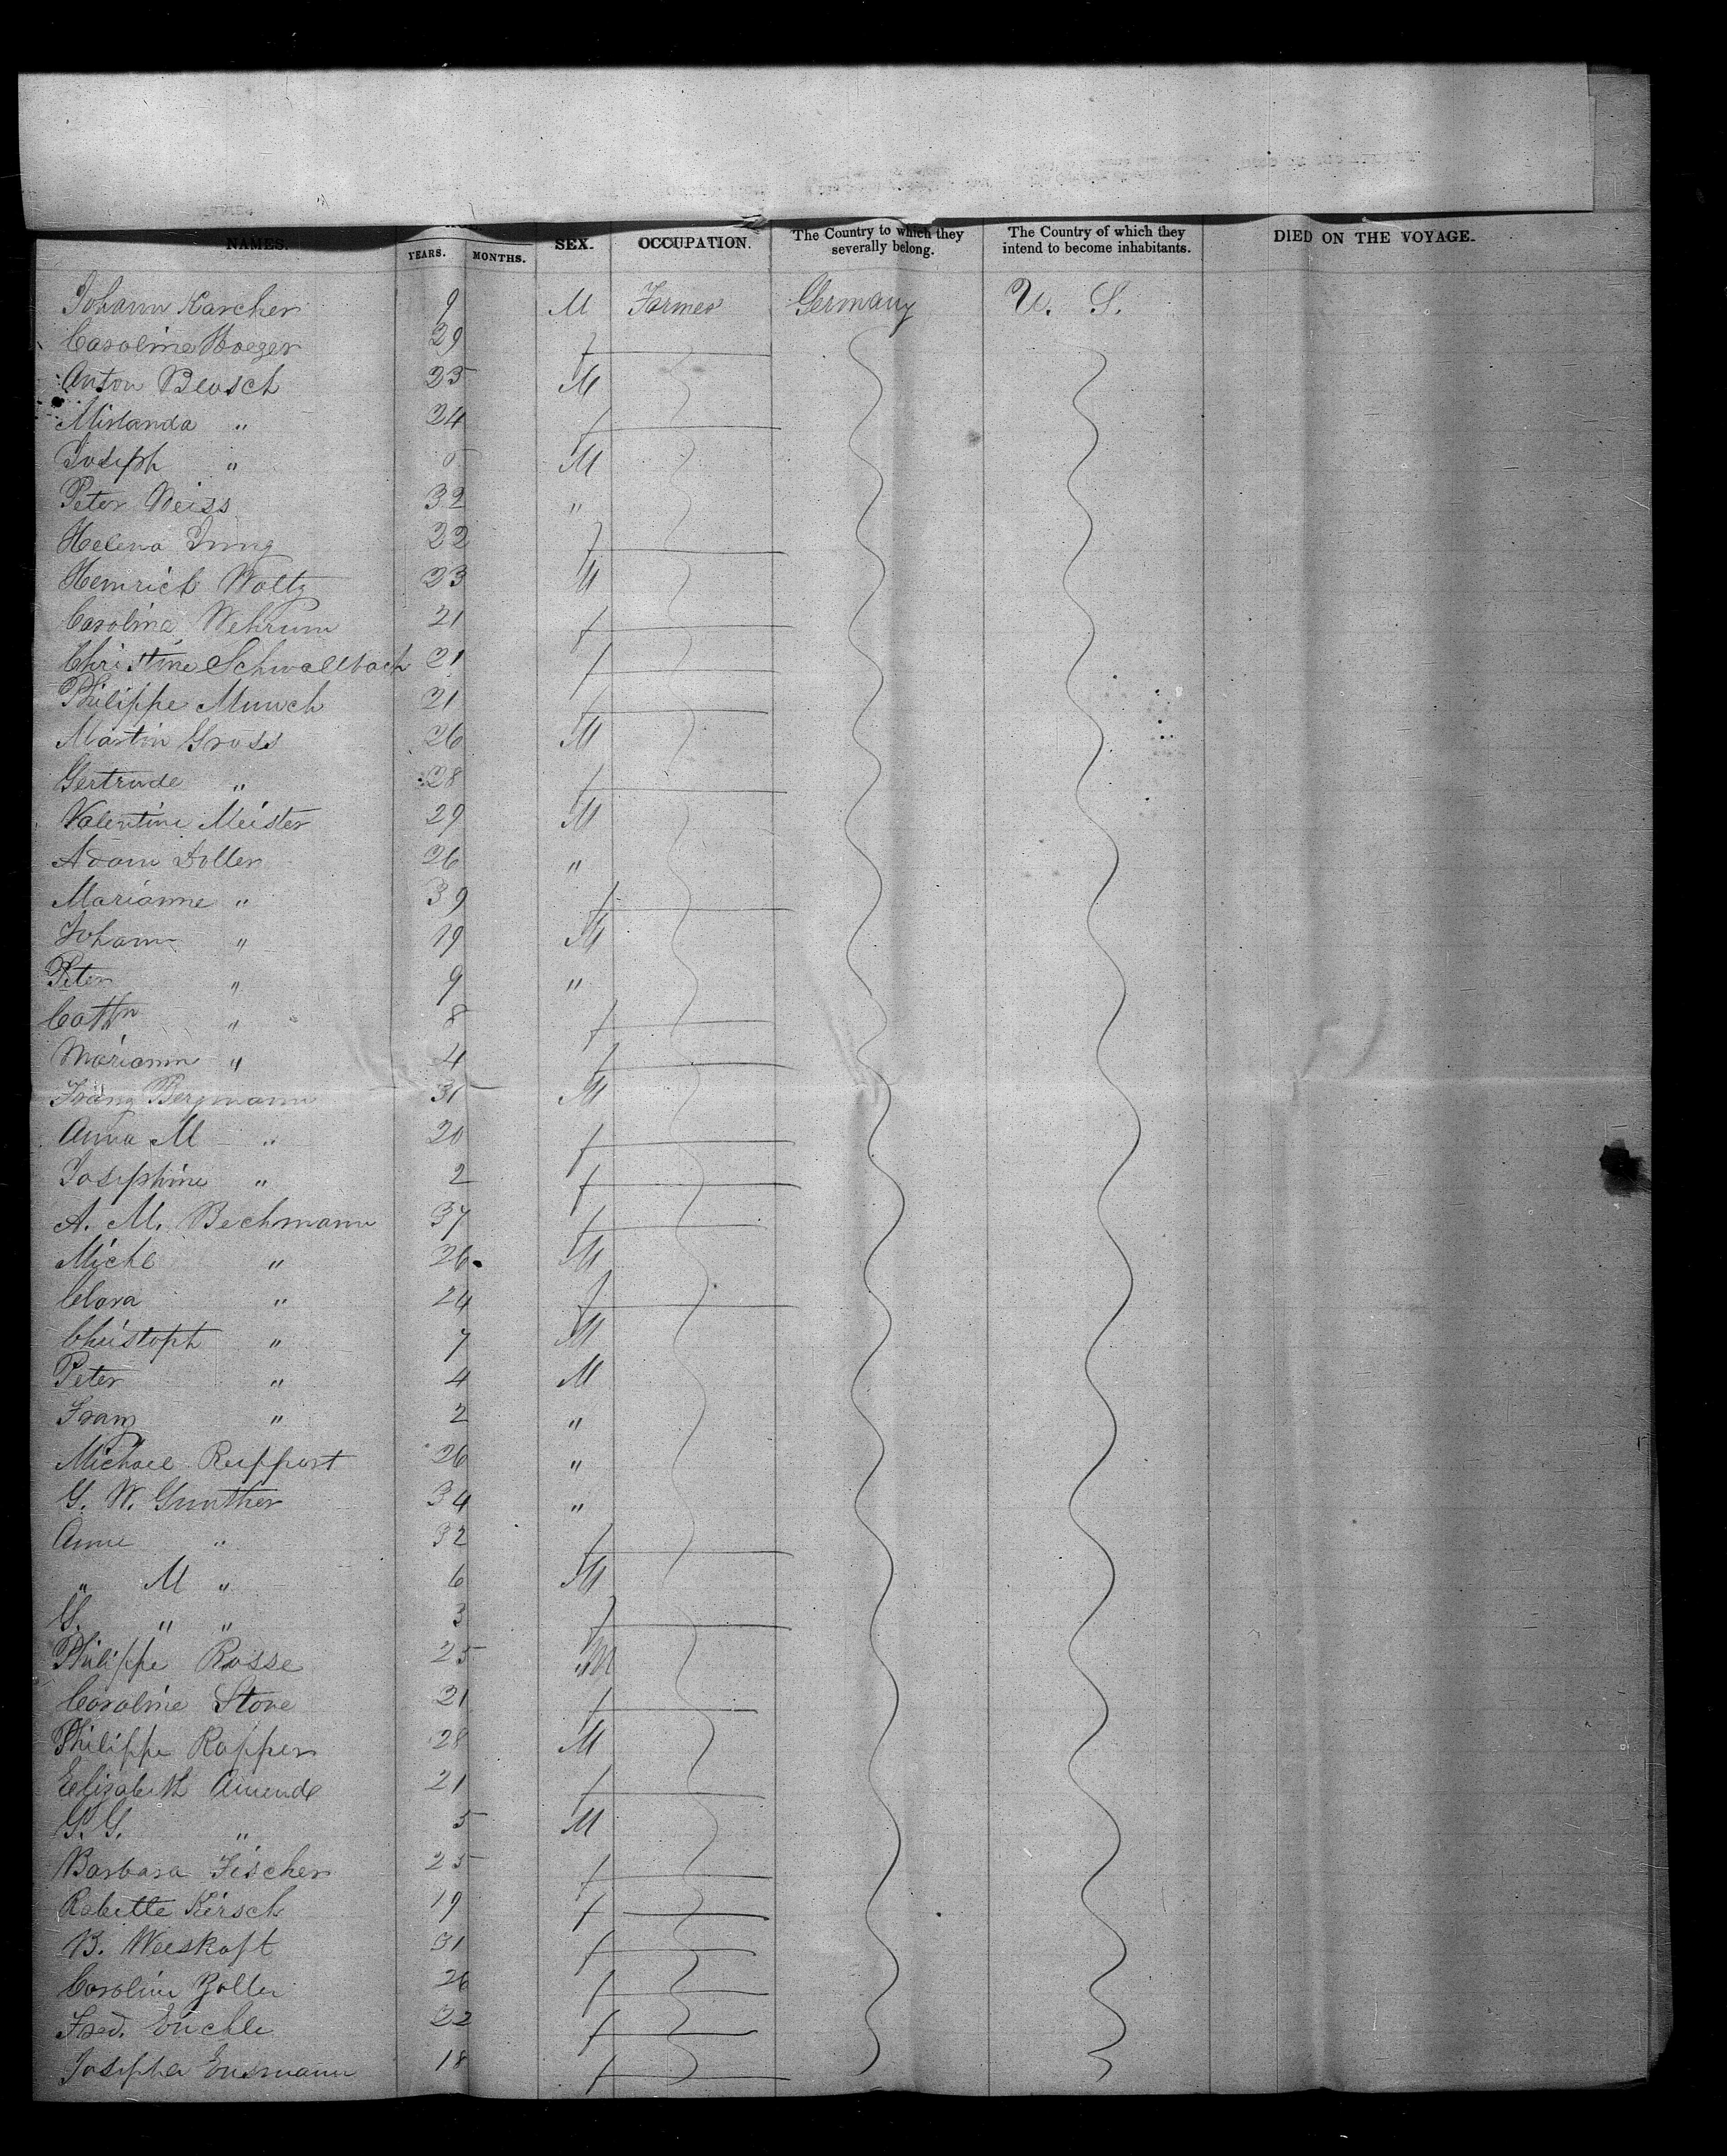 NAMES. YEARS. MONTHS. SEX. OCCUPATION. The Country to which they severally belong. The Country of which they intend to become inhabitants. DIED ON THE VOYAGE.
Johann Karcher 9 M Farmer Germany U. S.
Caroline Hoeger 29 f
Anton Beusch 25 M
Mirlanda " 24 f
Joseph " 5 M
Peter Weiss 32 "
Helena Jung 22 f
Heinrich Woltz 23 M
Carolina Wehrum 21 f
Christine Schwallbach 21 f
Philippe Munch 21 f
Martin Gross 26 M
Gertrude " 28 f
Valentine Meister 29 M
Adam Doller 26 "
Marianne " 39 f
Johann " 19 M
Peter " 9 "
Cathn " 8 f
Mariann " 4 f
Franz Bergmann 31 M
Anna M " 20 f
Josephine " 2 f
A. M. Bechmann 37 f
Michl " 26 M
Clara " 24 f
Christoph " 7 M
Peter " 4 M
Franz " 2 "
Michael Ruppert 26 "
G. W. Gunther 34 "
Anne " 32 f
" M " 6 M
G. " " 3 f
Philippe Rosse 25 M
Caroline Stove 21 f
Philippe Rapper 28 M
Elisabeth Amend 21 f
G. G. " 5 M
Barbara Fischer 25 f
Babette Kirsch 19 f
B. Weiskopt 31 f
Carolin Zoller 26 f
Fred. 22 f
Josepha Ensmann 18 f